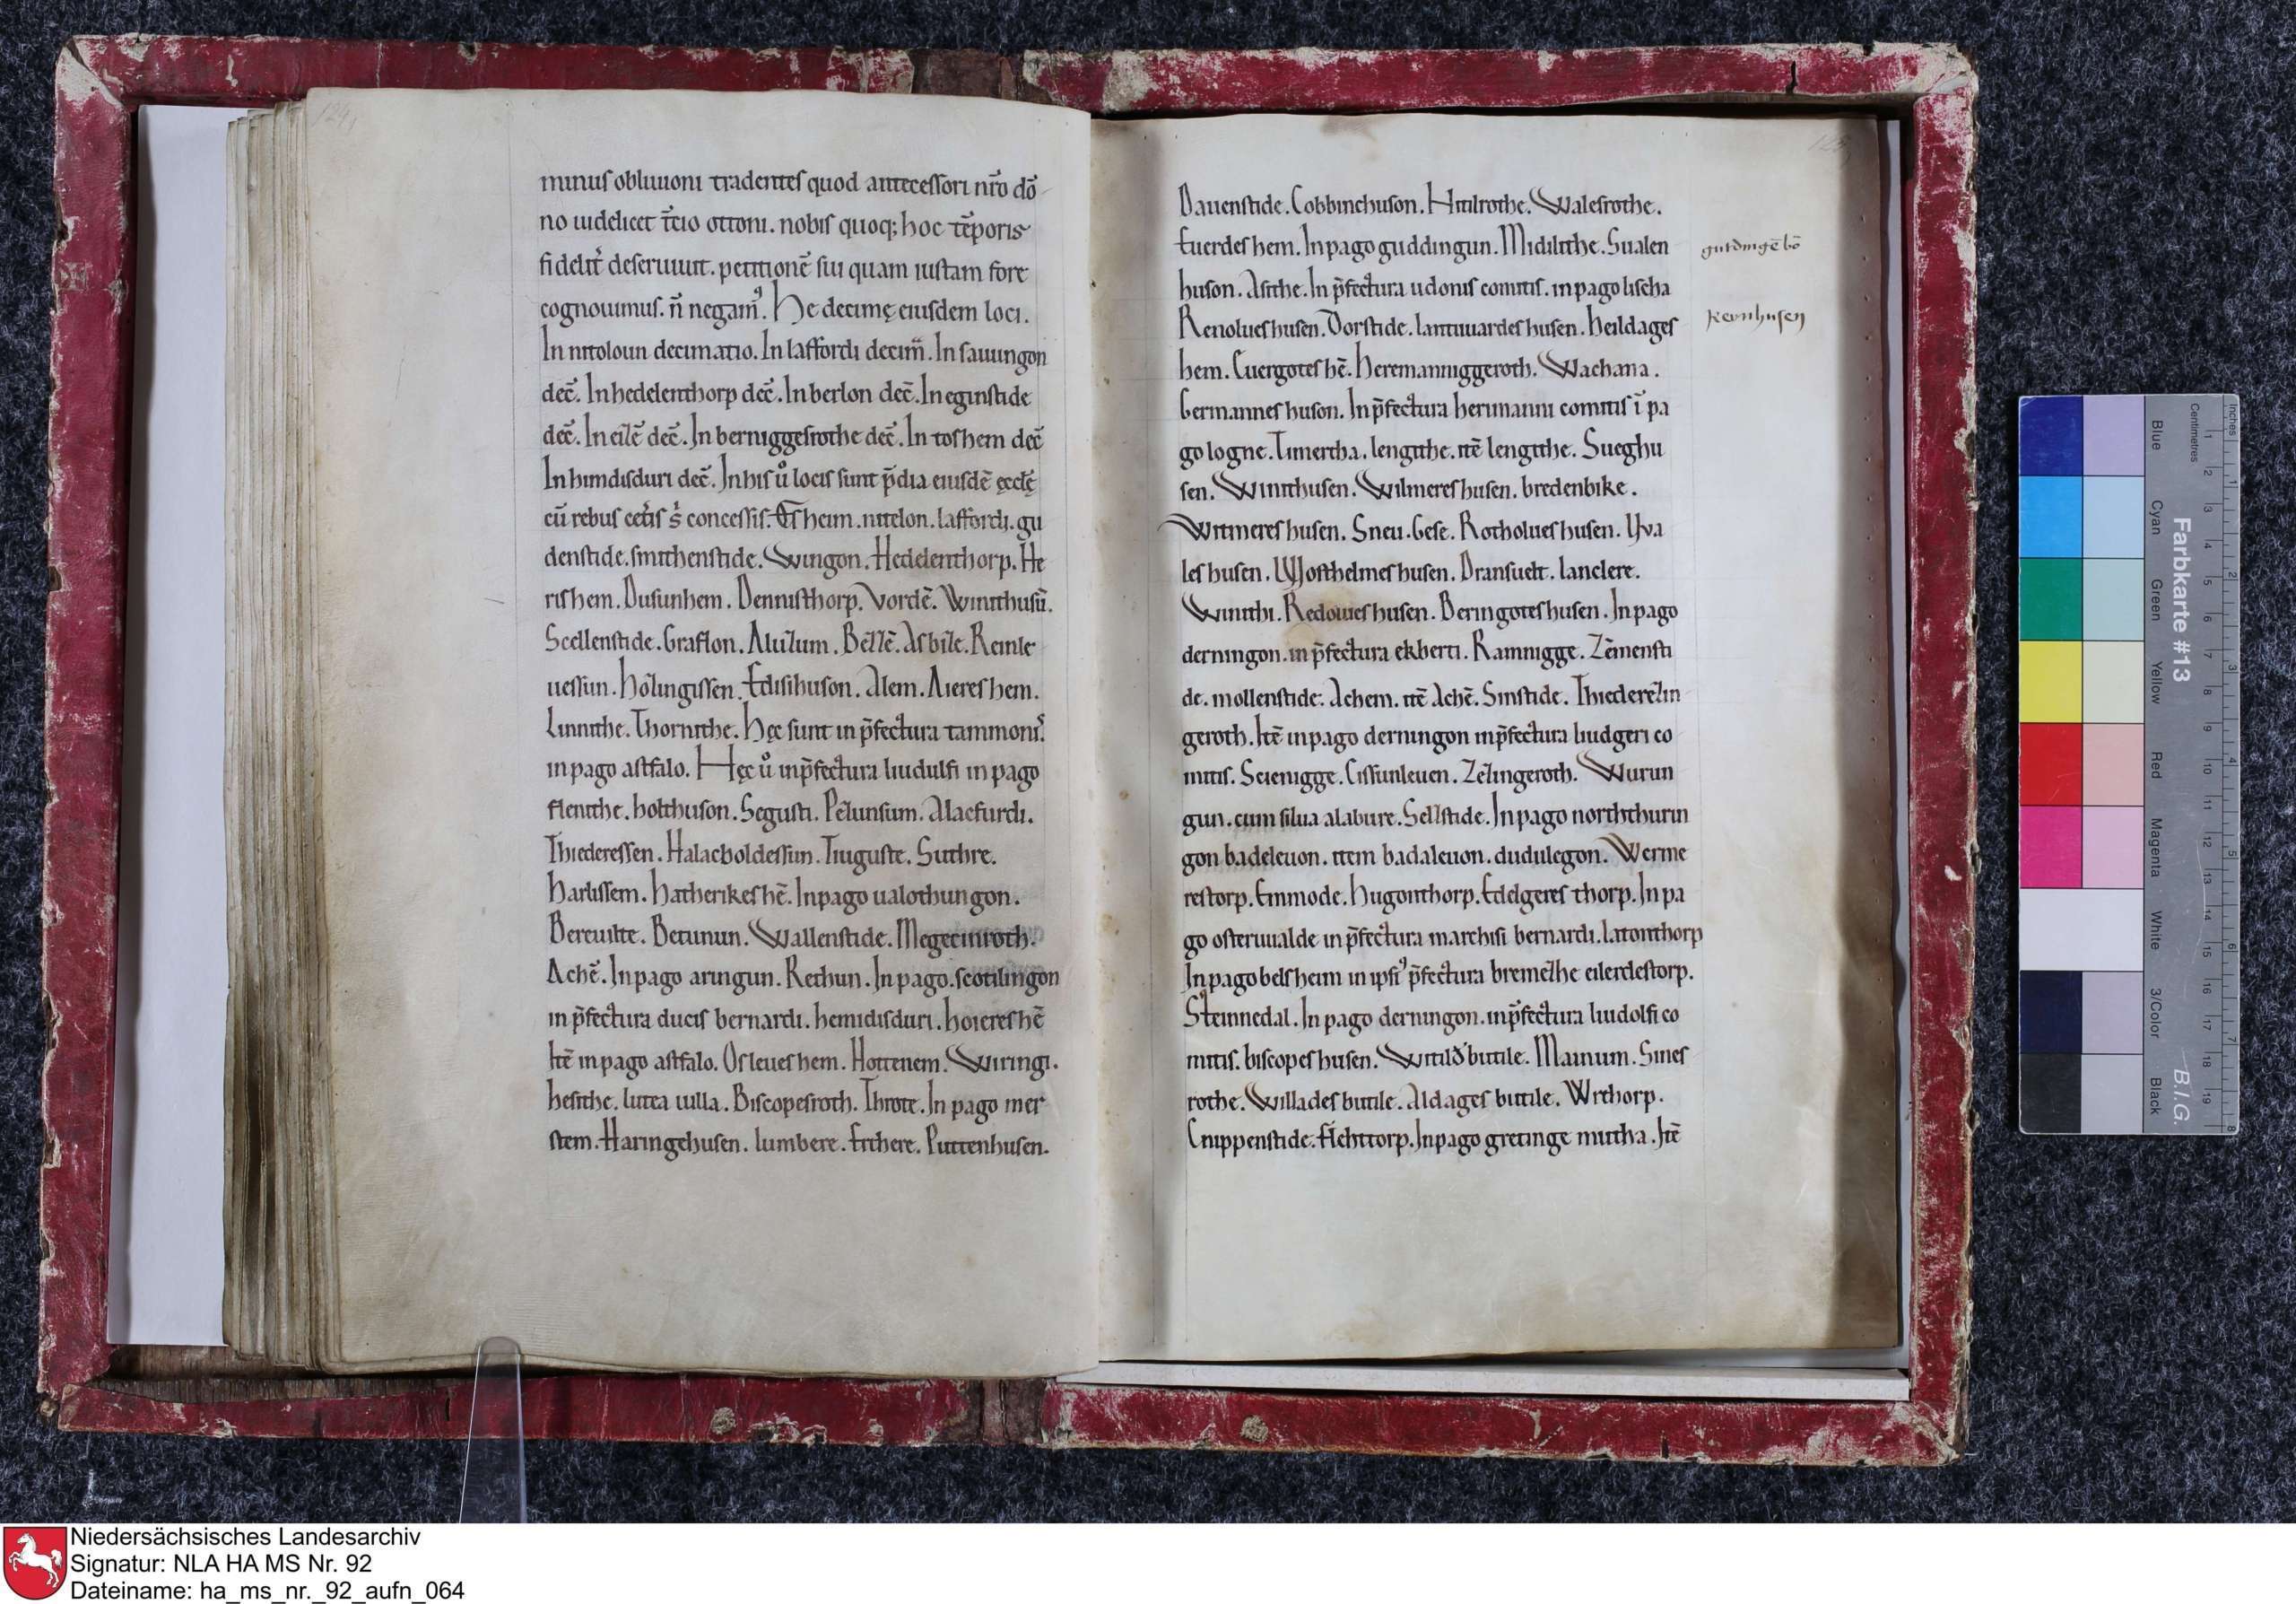 124
minus obliuioni tradentes quod antecessori nr̄o dō
no uidelicet t̄cio ottoni. nobis quoq; hoc tēporis
fidelit̄ deseruiuit. petitionē sui quam iustam fore
cognouimus. n̄ negam᷒. He decimę eiusdem loci.
In nitoloun decimatio. In laffordi decim̄. In sauuingon
dec̄. In hedelenthorp dec̄. In berlon dec̄. In eginstide
dec̄. In eilē dec̄. In berniggesrothe dec̄. In toshem dec̄
In himdisduri dec̄. In his ů locis sunt p̄dia eiusdē ęcclę̄
cū rebus cet̄is s̄ concessis. heim. nitelon. laffordi. gu
denstide. smithenstide. Wingon. Hedelenthorp. He
rishem. Dusunhem. Dennisthorp. Vordē. Winithusū.
Scellenstide. Graflon. Aluilum. Bellē. Asbile. Reinle
uessun. holingissen. Edisihuson. Alem. Aiereshem.
Linnithe. Thornithe. Hęc sunt in p̄fectura tammonis.
in pago astfalo. Hęc ů in p̄fectura liudulfi in pago
flenithe. holthuson. Segusti. Pelunsum. Alacfurdi.
Thiederessen. Halacboldessun. Tiuguste. Suthre.
harlissem. hatherikeshē. In pago ualothungon.
Bereuuilte. Betunun. Wallenstide. Megecinroth.
Achē. In pago aringun. Rethun. In pago scotilingon
in p̄fectura ducis bernardi. hemidisduri. hoiereshē
Itē in pago astfalo. Osleueshem. Hottenem. Wiringi.
hesithe. lutea uilla. Biscopesroth. Throte. In pago mer
stem. Haringehusen. lumbere. Erthere. Puttenhusen.
125
Dauenstide. Cobbinchuson. Hitilrothe. Walesrothe.
Euerdeshem. In pago guddingun. Midilithe. Sualen
gutdingē bō
huson. Asithe. In p̄fectura udonis comitis. in pago lischa
Renolueshusen. Dorstide. lantuuardeshusen. heildages
hem. Euergoteshē. heremanniggeroth. Wachana.
Germanneshuson. In p̄fectura herimanni comitis ī pa
go logne. Timertha. lengithe. itē lengithe. Sueghu
sen. Winithusen. Wilmereshusen. bredenbike.
Witmereshusen. Sneu. Gese. Rotholueshusen. Vva
leshusen. Wosthelmeshusen. Dransuelt. lanclere.
Winithi. Redowieshusen. Beringoteshusen. In pago
derningon. in p̄fectura ekberti. Rammigge. Zēmensti
de. mollenstide. Achem. itē Achē. Sinstide. Thiederelin
geroth. Itē in pago derningon in p̄fectura liudgeri co
mitis. Scienigge. Cissunleuen. Zelingeroth. Wurun
gun. cum silua alabure. Sellstide. In pago norththurin
gon badeleuon. item badaleuon. dudulegon. Werme
restorp. Emmode. hugonthorp. Edelgeres thorp. In pa
go osteruualde in p̄fectura marchisi bernardi. latonthorp
In pago belsheim in ipsi᷒ p̄fectura bremelhe eilerdestorp.
Steinnedal. In pago derningon. in p̄fectura liudolfi co
mitis. biscopeshusen. butile. Mainum. Sines
rothe. Willadesbutile. Aldagesbutile. Wrthorp.
Cnippenstide. flechttorp. In pago gretinge mutha. Itē
Farbkarte #13
B.I.G.
Inches
Centimetres
Blue
Cyan
Green
Yellow
Red
Magenta
White
3/Color
Black
Niedersächsisches Landesarchiv
Signatur: NLA HA MS Nr. 92
Dateiname: ha_ms_nr._92_aufn_064